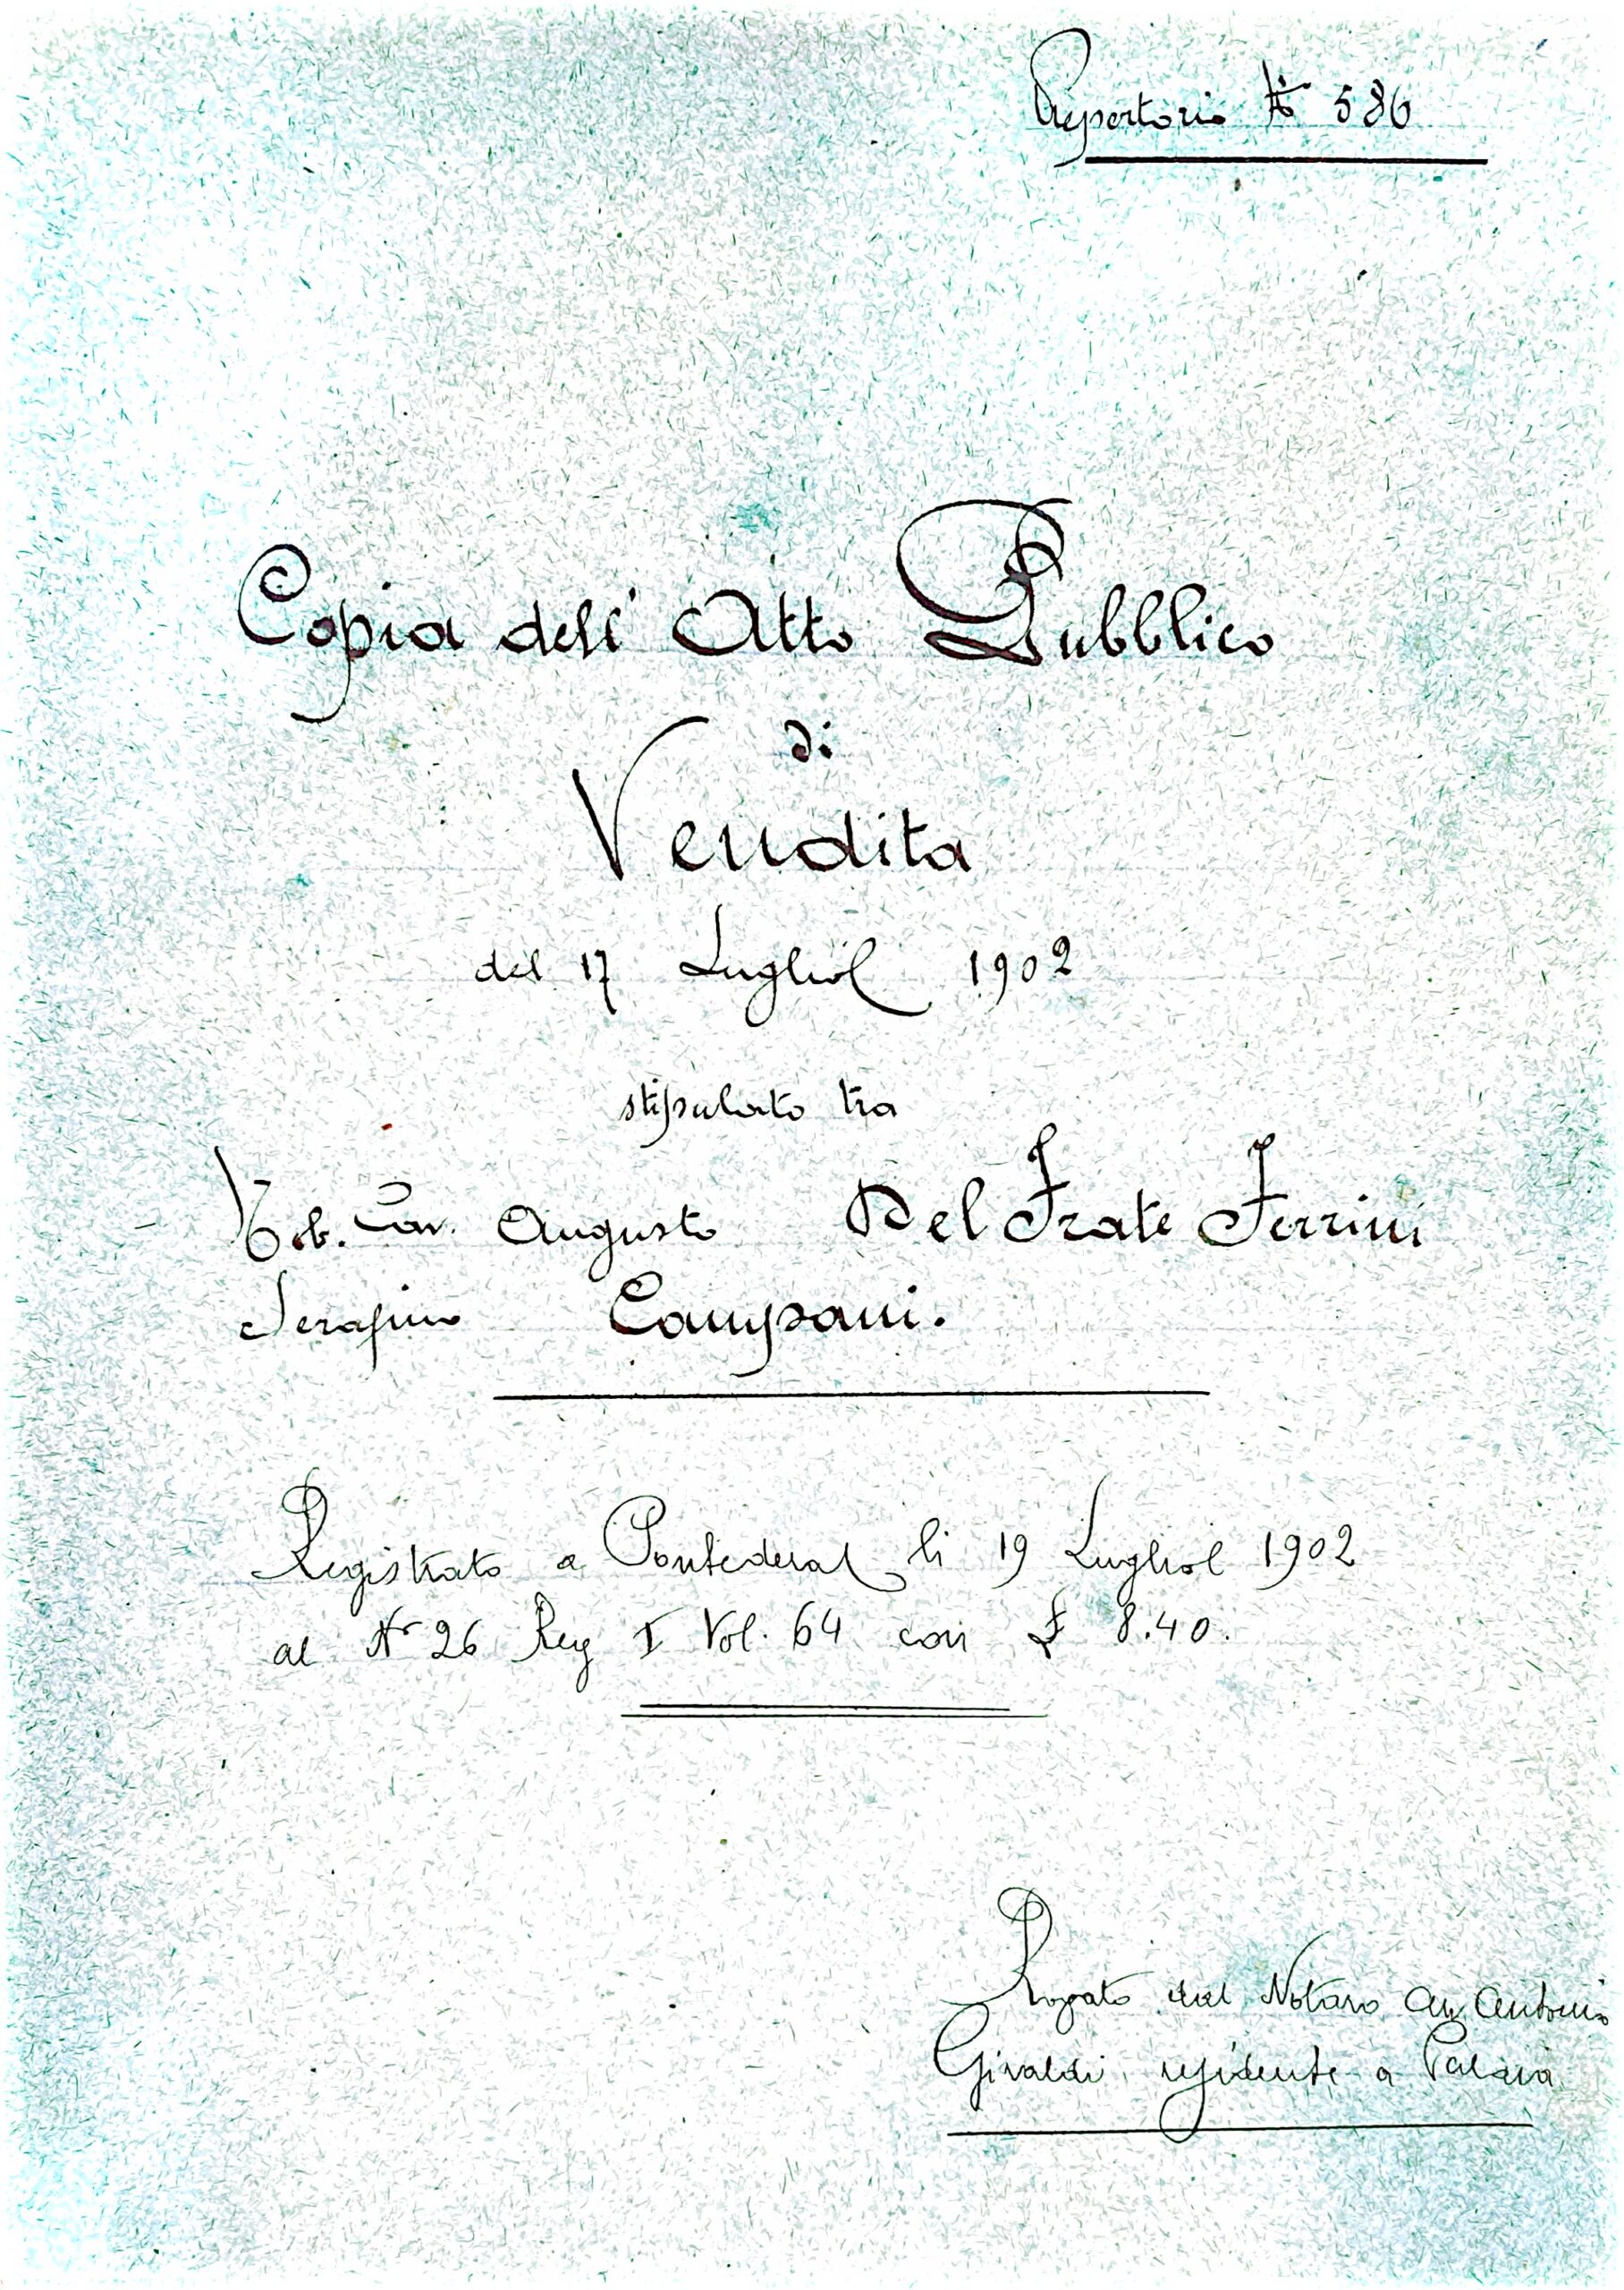 Repertorio N° 586
Copia dell' Atto Pubblico
di
Vendita
del 17 Luglio 1902
stipulato tra
Nob. Cav. Augusto Del Frate Ferrini
Serafino Campani.
Registrato a Pontedera li 19 Luglio 1902
al N° 26 Reg I Vol. 64 con £ 8.40.
Rogato dal Notaro Avv Antonio
Giraldi residente a Palaia